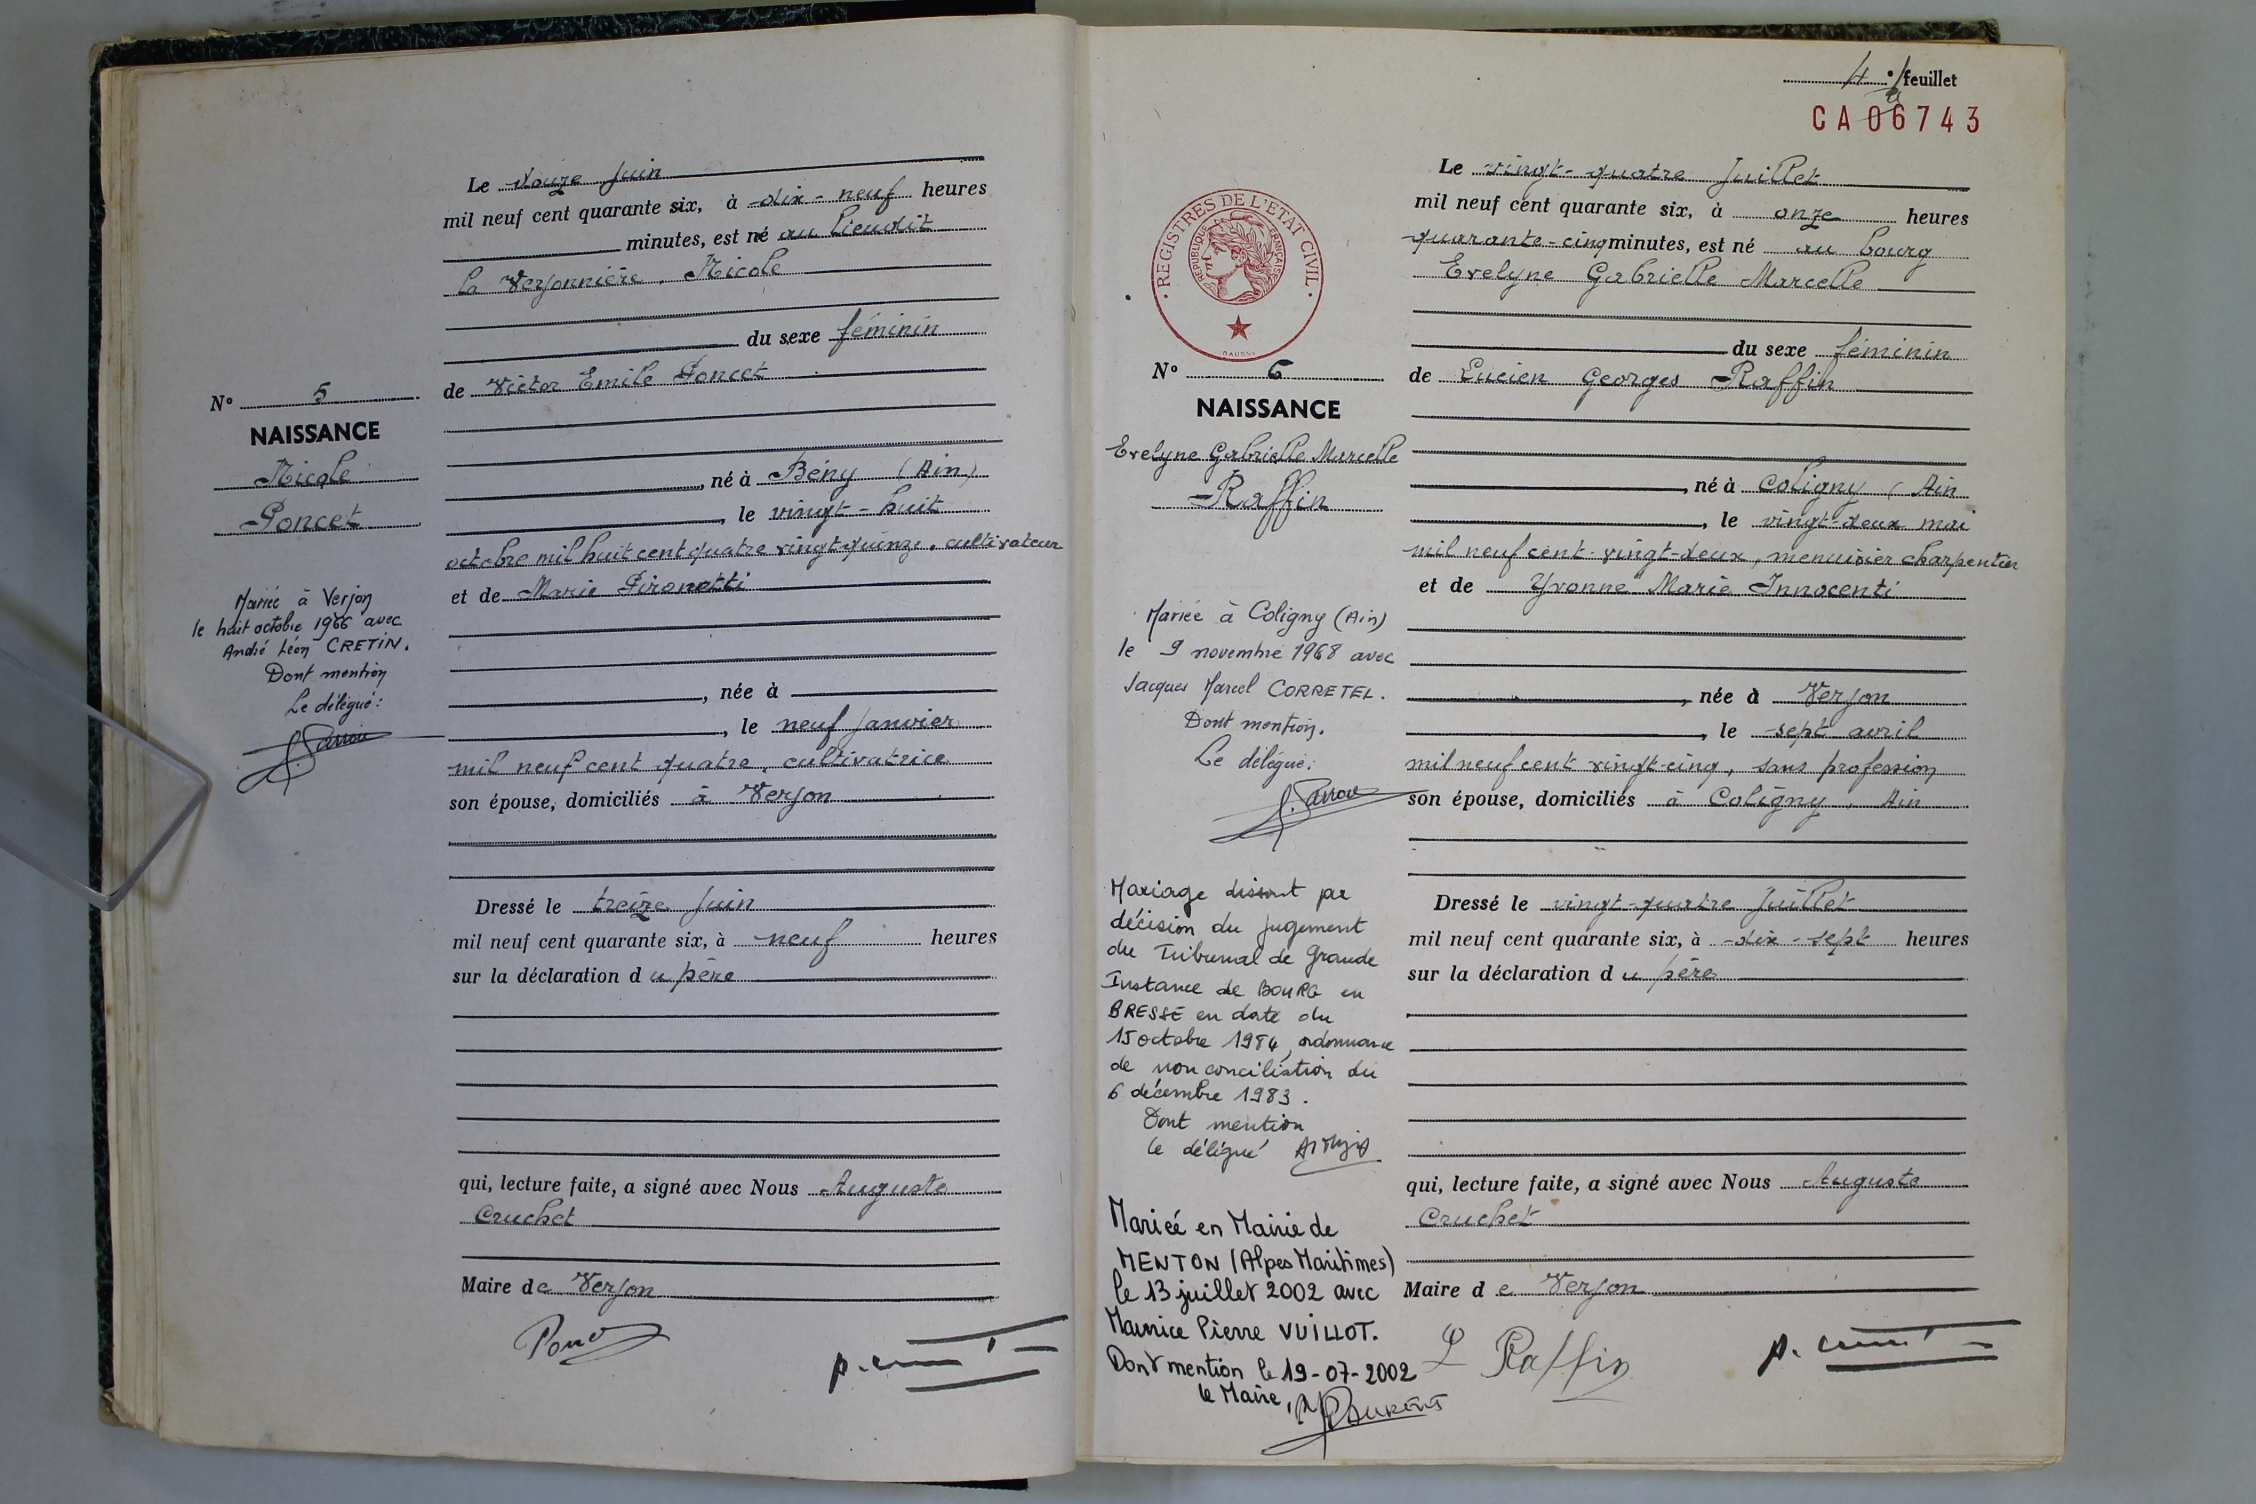 Le douze juin
mil neuf cent quarante six, à dix-neuf heures
minutes, est né au lieudit
la Verjonnière, Nicole
du sexe féminin
N° 5
de Victor Emile Poncet
NAISSANCE
Nicole
Poncet
, né à Bény (Ain)
, le vingt-huit
octobre mil huit cent quatre vingt quinze, cultivateur
et de Marie Pironetti
Mariée à Verjon
le huit octobre 1966 avec
André Léon CRETIN.
Dont mention
Le délégué:
, née à
, le neuf janvier
mil neuf cent quatre, cultivatrice
son épouse, domiciliés à Verjon
Dressé le treize juin
mil neuf cent quarante six, à neuf heures
sur la déclaration du père
qui, lecture faite, a signé avec Nous Auguste
Cruchet
Maire de Verjon
4e feuillet
CA06743
Le vingt-quatre Juillet
mil neuf cent quarante six, à onze heures
quarante-cinq minutes, est né au bourg
Evelyne Gabrielle Marcelle
REGISTRES DE L'ETAT CIVIL
REPUBLIQUE FRANÇAISE
du sexe féminin
N° 6
de Lucien Georges Raffin
NAISSANCE
Evelyne Gabrielle Marcelle
Raffin
, né à Coligny (Ain
, le vingt-deux mai
mil neuf cent vingt-deux, menuisier charpentier
et de Yvonne Marie Innocenti
Mariée à Coligny (Ain)
le 9 novembre 1968 avec
Jacques Marcel CORRETEL.
Dont mention.
Le délégué:
, née à Verjon
, le sept avril
mil neuf cent vingt-cinq, sans profession
son épouse, domiciliés à Coligny, Ain
Mariage dissout par
décision du jugement
du Tribunal de Grande
Instance de BOURG en
BRESSE en date du
15 octobre 1984, ordonnance
de non conciliation du
6 décembre 1983.
Dont mention
le délégué
Dressé le vingt-quatre Juillet
mil neuf cent quarante six, à dix-sept heures
sur la déclaration du père
qui, lecture faite, a signé avec Nous Auguste
Cruchet
Maire de Verjon
Mariée en Mairie de
MENTON (Alpes Maritimes)
le 13 juillet 2002 avec
Maurice Pierre VUILLOT.
Dont mention le 19-07-2002
le Maire,
L Raffin